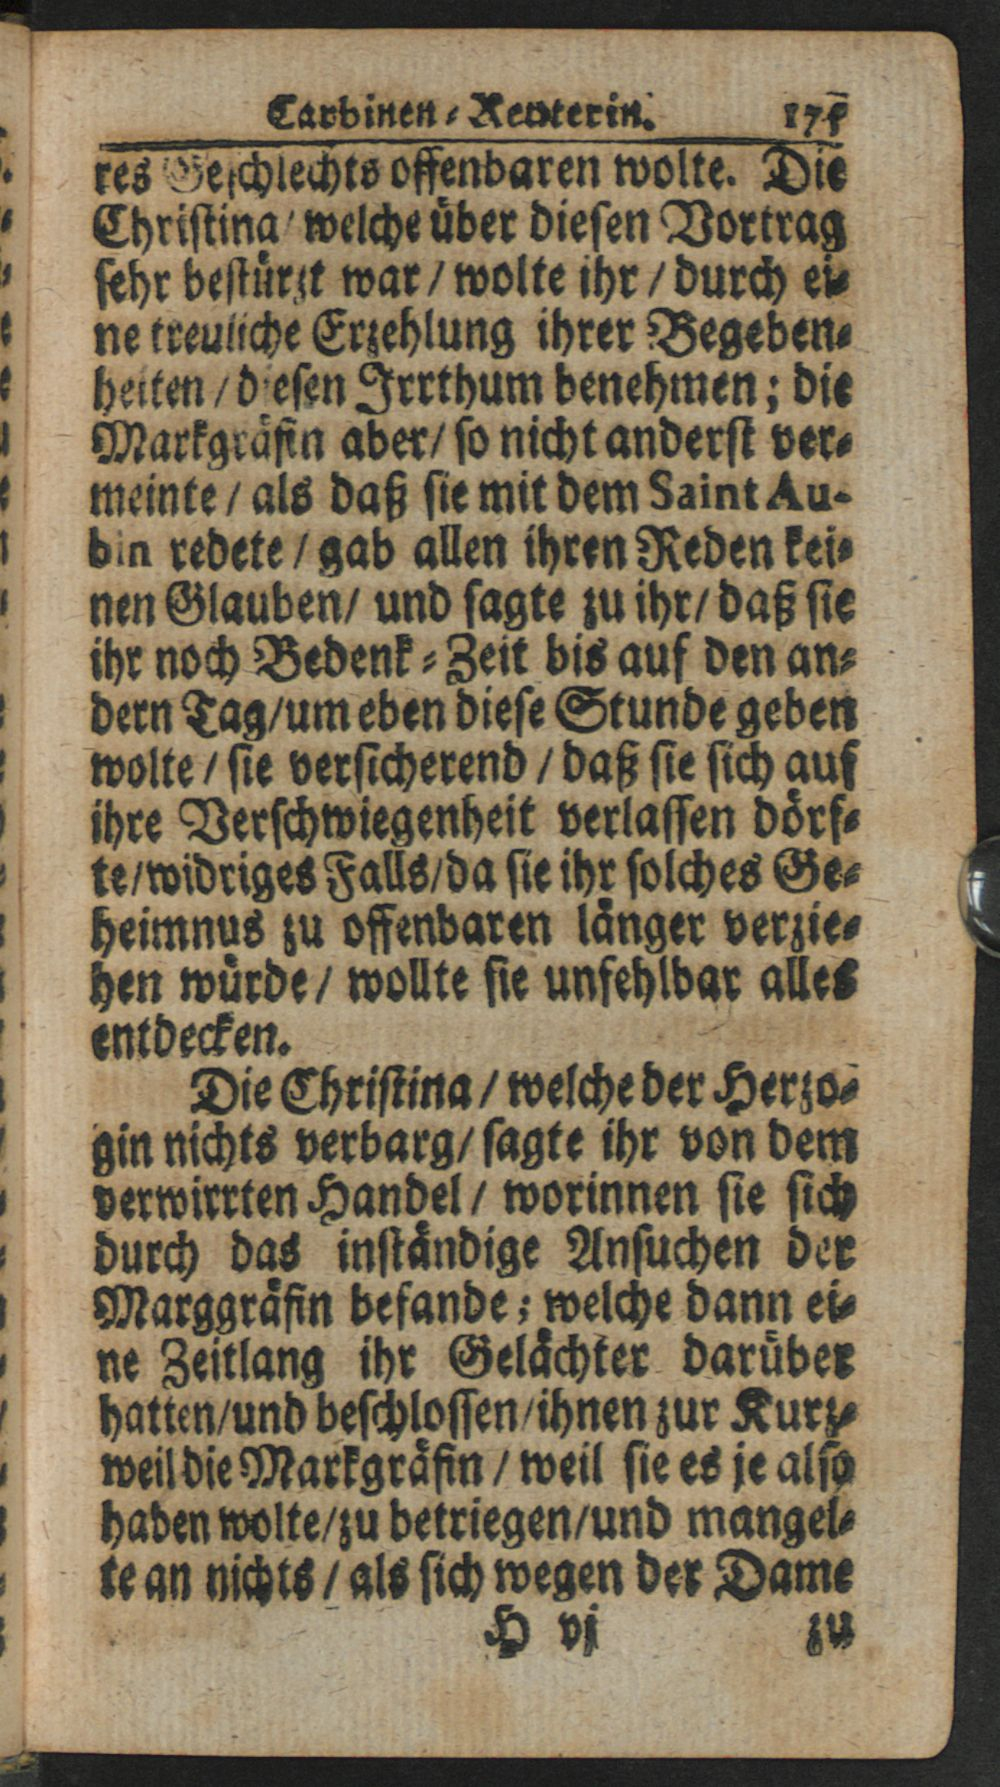 Carbinen-Reuterin. 175
res Geschlechts offenbaren wolte. Die
Christina / welche über diesen Vortrag
sehr bestürzt war / wolte ihr / durch ei-
ne treuliche Erzehlung ihrer Begeben-
heiten / diesen Irrthum benehmen; die
Markgräfin aber / so nicht anderst ver-
meinte / als daß sie mit dem Saint Au-
bin redete / gab allen ihren Reden kei-
nen Glauben / und sagte zu ihr / daß sie
ihr noch Bedenk-Zeit bis auf den an-
dern Tag / um eben diese Stunde geben
wolte / sie versicherend / daß sie sich auf
ihre Verschwiegenheit verlassen dörf-
te / widriges Falls / da sie ihr solches Ge-
heimnus zu offenbaren länger verzie-
hen würde / wollte sie unfehlbar alles
entdecken.
Die Christina / welche der Herzo-
gin nichts verbarg / sagte ihr von dem
verwirrten Handel / worinnen sie sich
durch das inständige Ansuchen der
Marggräfin befande; welche dann ei-
ne Zeitlang ihr Gelächter darüber
hatten / und beschlossen / ihnen zur Kurz-
weil die Markgräfin / weil sie es je also
haben wolte / zu betriegen / und mangel-
te an nichts / als sich wegen der Dame
H vj zu